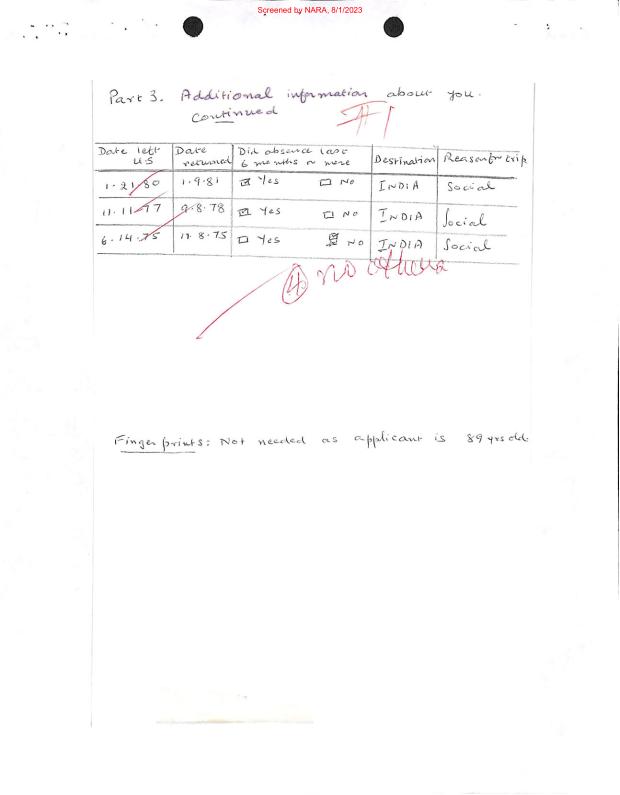 Screened by NARA, 8/1/2023
Part 3. Additional information about you.
continued
#1
Date left U.S | Date returned | Did absence last 6 months or more | Destination | Reason for trip
1.21.80 | 1.9.81 | ☒ Yes ☐ No | INDIA | Social
11.11.77 | 9.8.78 | ☒ Yes ☐ No | INDIA | Social
6.14.75 | 11.8.75 | ☐ Yes ☒ No | INDIA | Social
④ no others
Finger prints: Not needed as applicant is 89 yrs old.